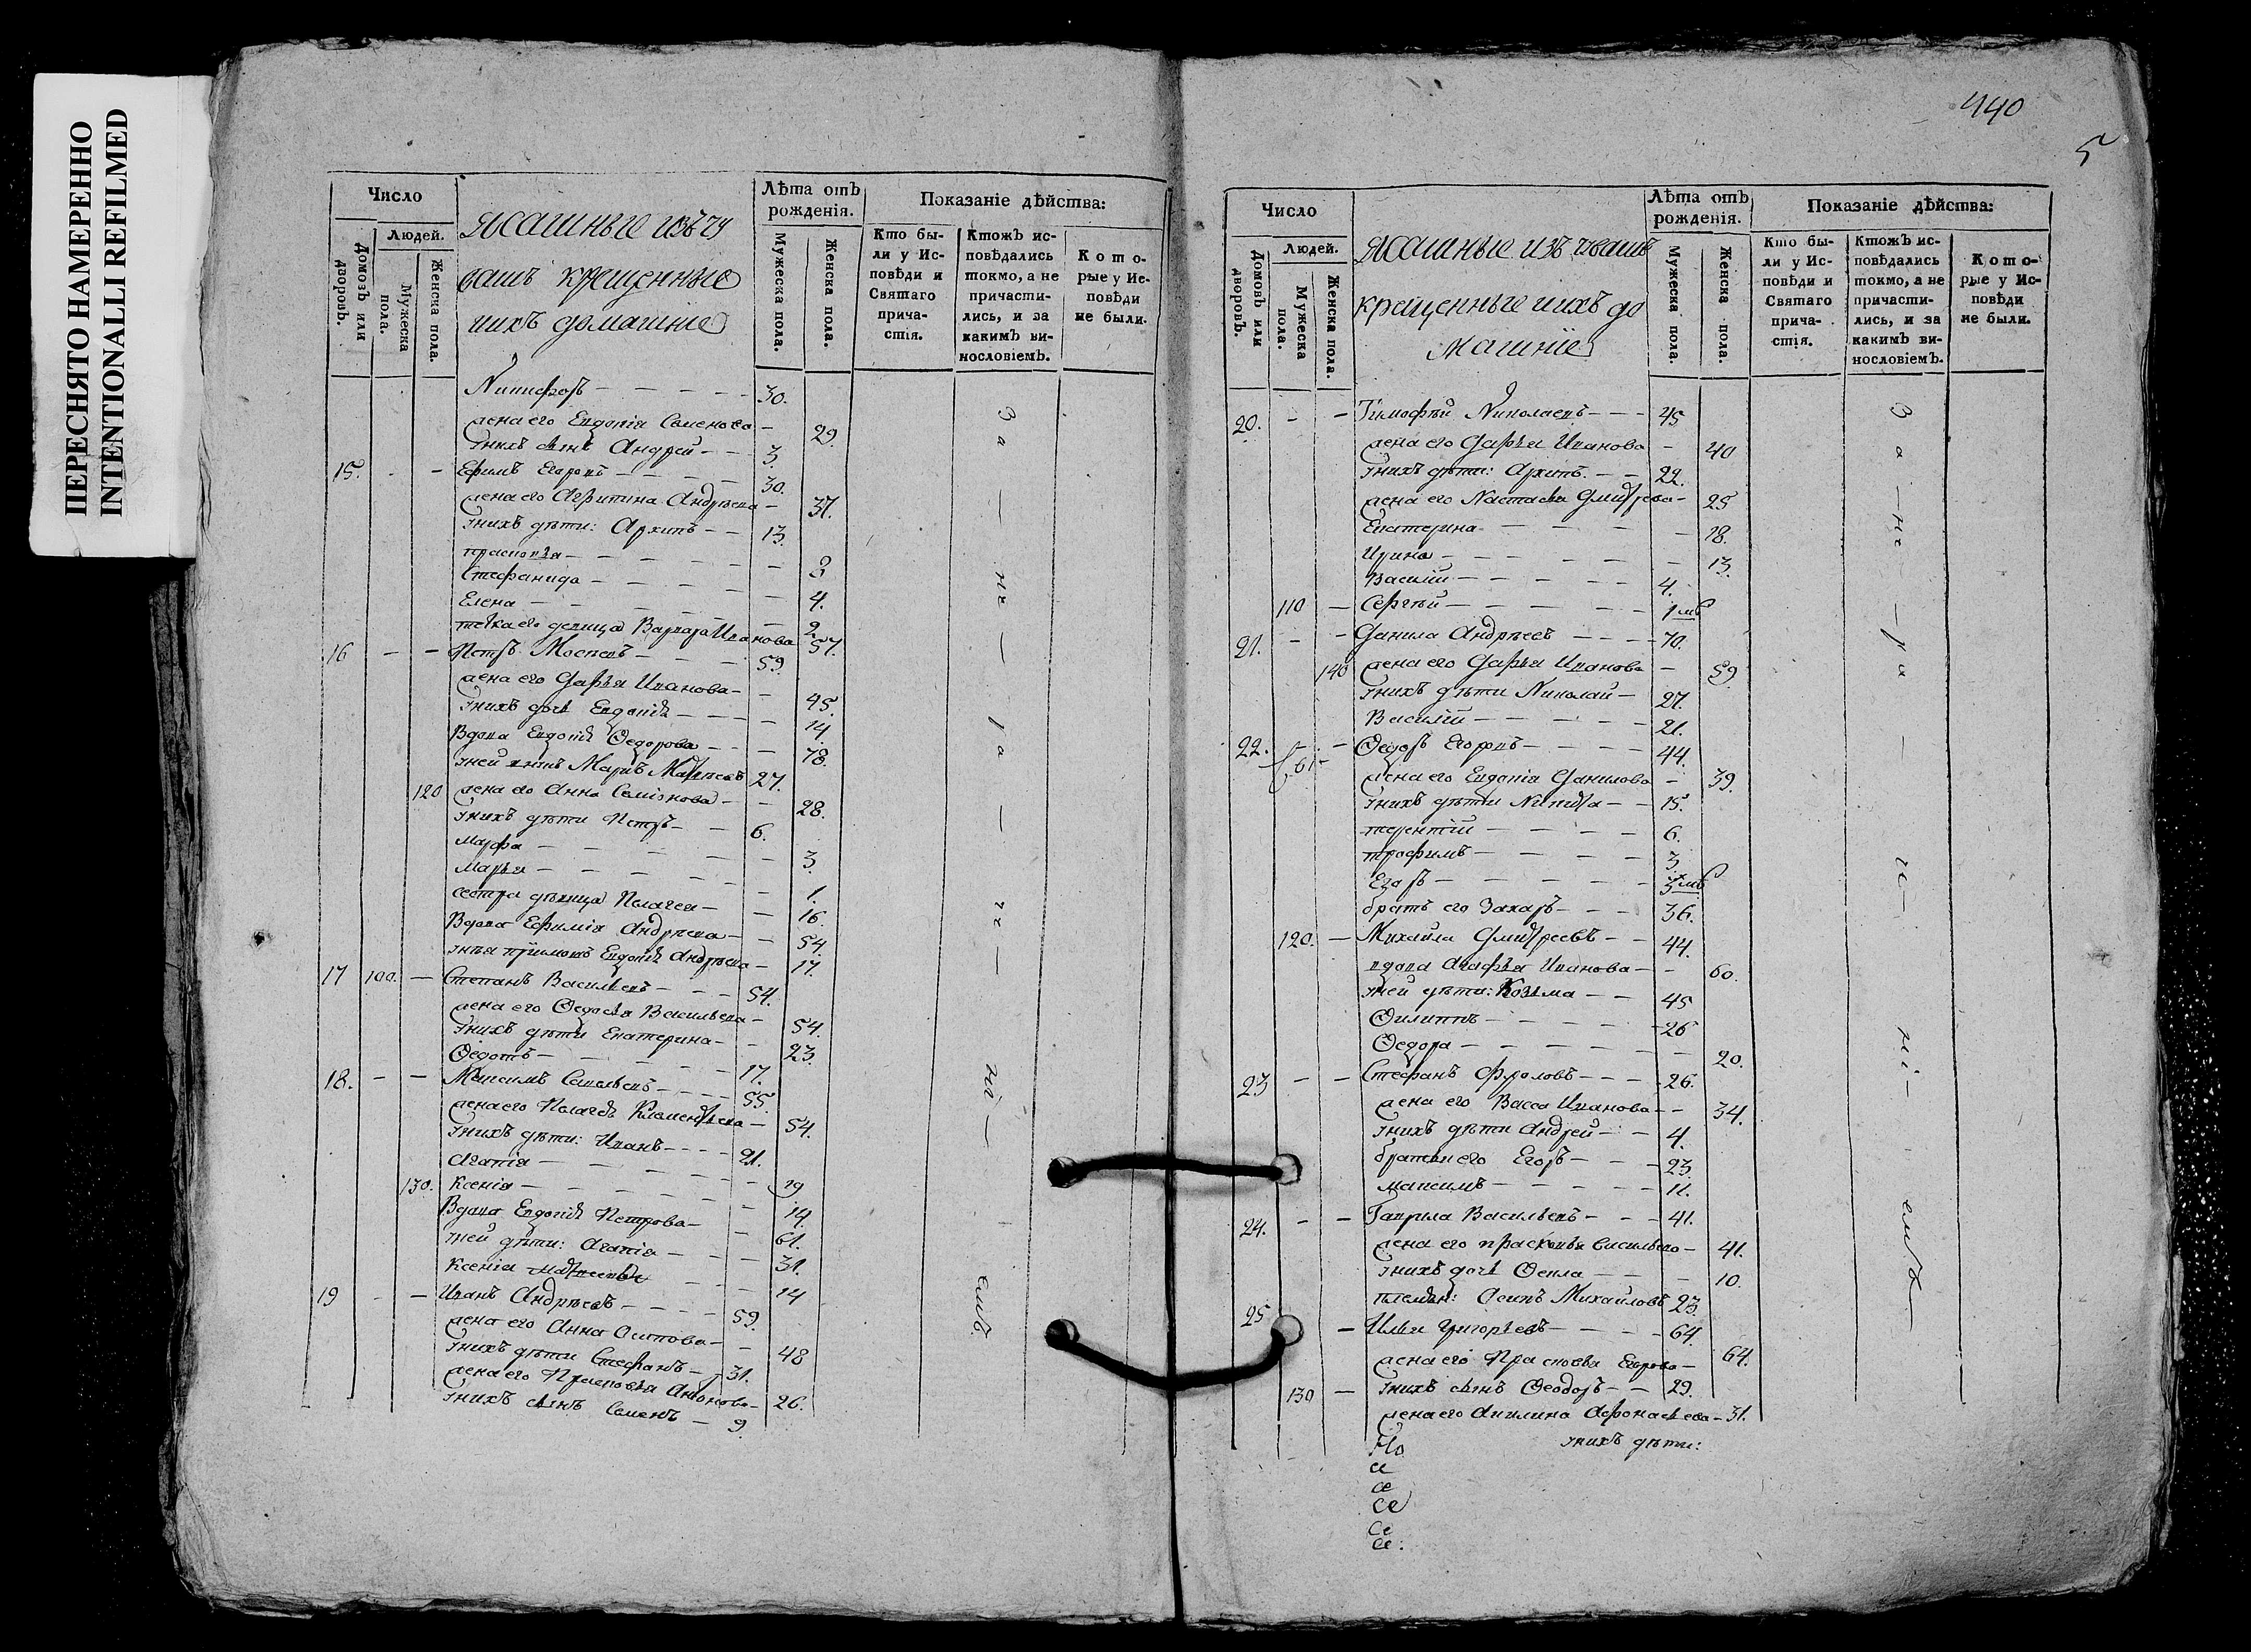 ПЕРЕСНЯТО НАМЕРЕННО
INTENTIONALLI REFILMED
Число
Людей.
Домовъ или дворовъ.
Мужеска пола.
Женска пола.
Ясашные изъ чу
вашъ крещенные
ихъ домашніе
Лѣта отъ рожденія.
Мужеска пола.
Женска пола.
Показаніе дѣйства:
Кто бы-
ли у Ис-
повѣди и
Святаго
прича-
стія.
Ктожъ ис-
повѣдались
токмо, а не
причасти-
лись, и за
какимъ ви-
нословіемъ.
Кото-
рые у Ис-
повѣди
не были.
Никифоръ - 30.
жена его Евдокія Семенова - 29.
у нихъ сынъ Андрей - 3.
15. Ефимъ Егоровъ - 30.
жена его Агрипина Андреева - 37.
у нихъ дѣти: Архипъ - 13.
Прасковья - 8
Стефанида - 4.
Елена - 2
тетка его девица Варвара Иванова 57.
16 Петръ Моѵсеевъ - 59.
жена его Дарья Иванова - 45.
у нихъ дочь Евдокія - 14.
Вдова Евдокія Ѳедорова - 78.
у ней внукъ Маркъ Матвеевъ 27.
120 жена его Анна Семіонова - 28.
у нихъ дѣти Петръ - 6.
Марфа - 3.
Марья - 1.
сестра дѣвица Пелагея - 16.
Вдова Ефимія Андреева - 54.
Евдокія Андреева - 17.
17 100. Степанъ Васильевъ - 54.
жена его Ѳедосья Васильева - 54.
у нихъ дѣти Екатерина - 23.
Ѳедотъ - 17.
18. Максимъ Савельевъ - 55.
жена его Пелагея Климентьева - 54.
у нихъ дѣти: Иванъ - 21.
Агапія - 19
130. Ксенія - 14.
Вдова Евдокія Петрова - 61.
у ней дѣти: Агапія - 31.
Ксенія 14
19 Иванъ Андреевъ - 59.
жена его Анна Осипова - 48
у нихъ дѣти Стефанъ - 31.
жена его Прасковья Антонова - 26.
у нихъ сынъ Семенъ - 9.
За не ра че ні емъ.
440
5
Число
Людей.
Домовъ или дворовъ.
Мужеска пола.
Женска пола.
Ясашные изъ чвашъ
крещенные и ихъ до
машніе
Лѣта отъ рожденія.
Мужеска пола.
Женска пола.
Показаніе дѣйства:
Кто бы-
ли у Ис-
повѣди и
Святаго
прича-
стія.
Ктожъ ис-
повѣдались
токмо, а не
причасти-
лись, и за
какимъ ви-
нословіемъ.
Кото-
рые у Ис-
повѣди
не были.
20. Тимофѣй Николаевъ - 45
жена его Дарья Иванова - 40
у нихъ дѣти: Архипъ - 22.
жена его Настасья Дмитрева - 25
Екатерина - 18.
Ирина - 13.
Василій - 4.
110 Сергѣй - 1 мѣ
21. Данила Андреевъ - 70.
140 жена его Дарья Иванова - 59.
у нихъ дѣти Николай - 27.
Василій - 21.
22. Ѳедоръ Егоровъ - 44.
жена его Евдокія Данилова - 39.
у нихъ дѣти Никита - 15.
Терентій - 6.
Трофимъ - 3.
Егоръ - 3 мѣ
братъ его Захаръ - 36.
120. Михайла Дмитреевъ - 44.
вдова Агафья Иванова - 60.
у ней дѣти: Козьма - 45
Филиппъ - 26
Ѳедора - 20.
23 Стефанъ Фроловъ - 26.
жена его Васса Иванова - 34.
у нихъ дѣти Андрей - 4.
братья его Егоръ - 23.
Максимъ - 11.
24. Гаврила Васильевъ - 41.
жена его Прасковья Васильева - 41.
у нихъ дочь Ѳекла - 10.
племян: Осипъ Михайловъ 23.
25 Илья Григорьевъ - 64.
жена его Прасковья Егорова - 64.
130 у нихъ сынъ Ѳеодоръ - 29.
жена его Акилина Афонасьева - 31.
у нихъ дѣти:
За не ра че ні емъ